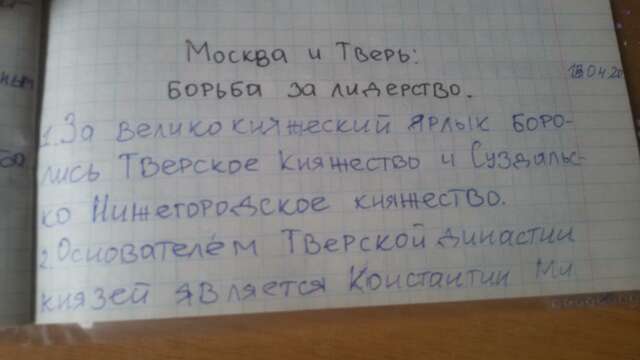 Москва и Тверь:
18.04.20
борьба за лидерство.
1. За великокняжеский ярлык боро-
лись Тверское княжество и Суздальс-
ко Нижегородское княжество.
2. Основателем Тверской династии
князей является Константин Ми